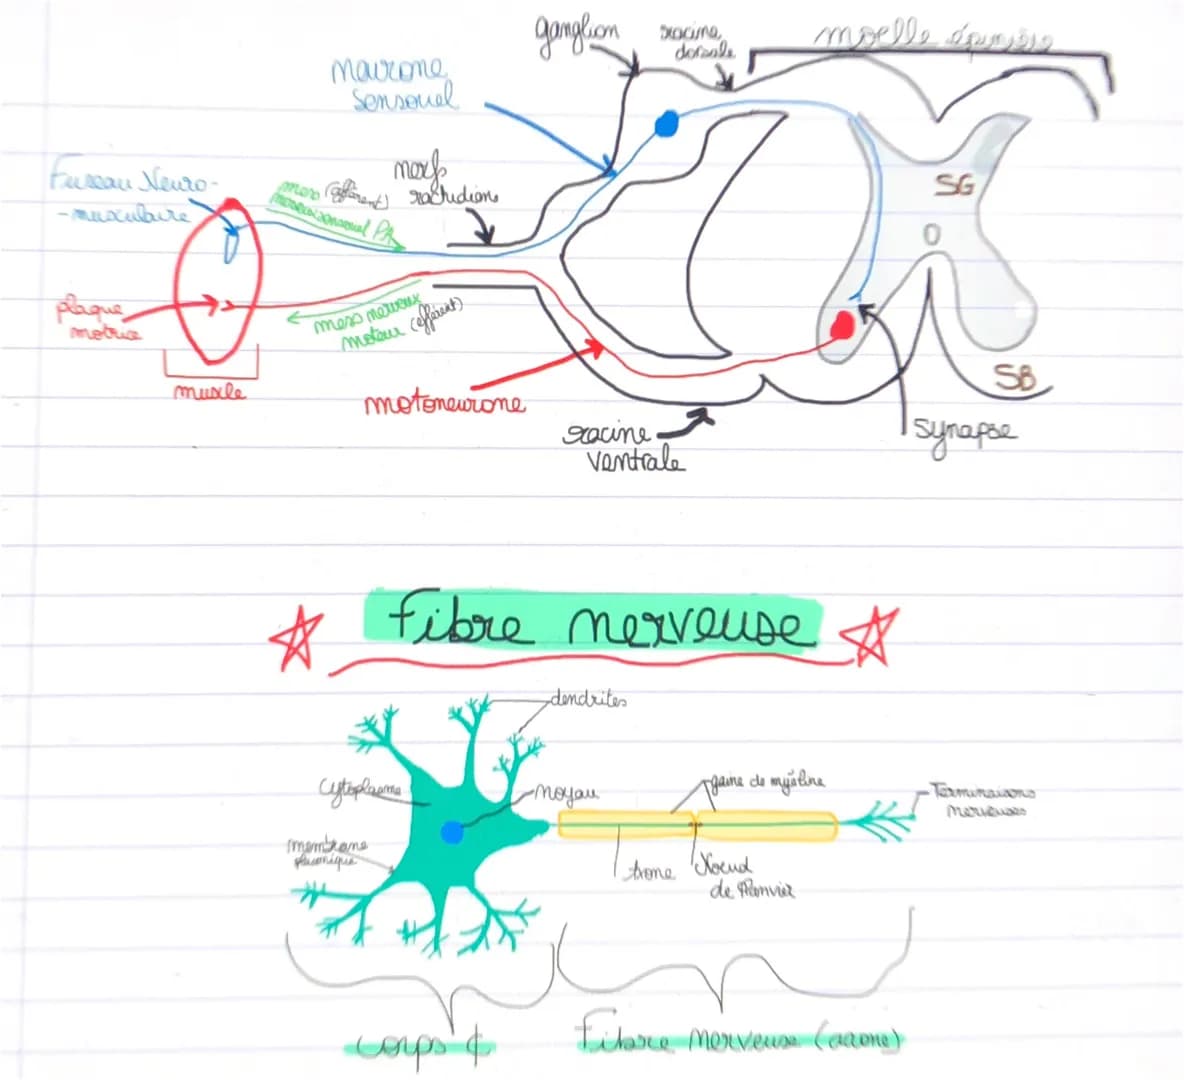 ganglion
racine
dorsale
moelle épinière
neurone
sensoriel
Fuseau Neuro-
-musculaire
mess (afférent)
nerveux sensoriel PA
nerfs
rachidiens
SG
plaque
motrice
mess nerveux
moteur (efférent)
muscle
motoneurone
racine
ventrale
SB
synapse
Fibre nerveuse
dendrites
cytoplasme
noyau
gaine de myéline
Terminaisons
nerveuses
membrane
plasmique
axone
Noeud
de Ranvier
corps ¢
Fibre nerveuse (axone)